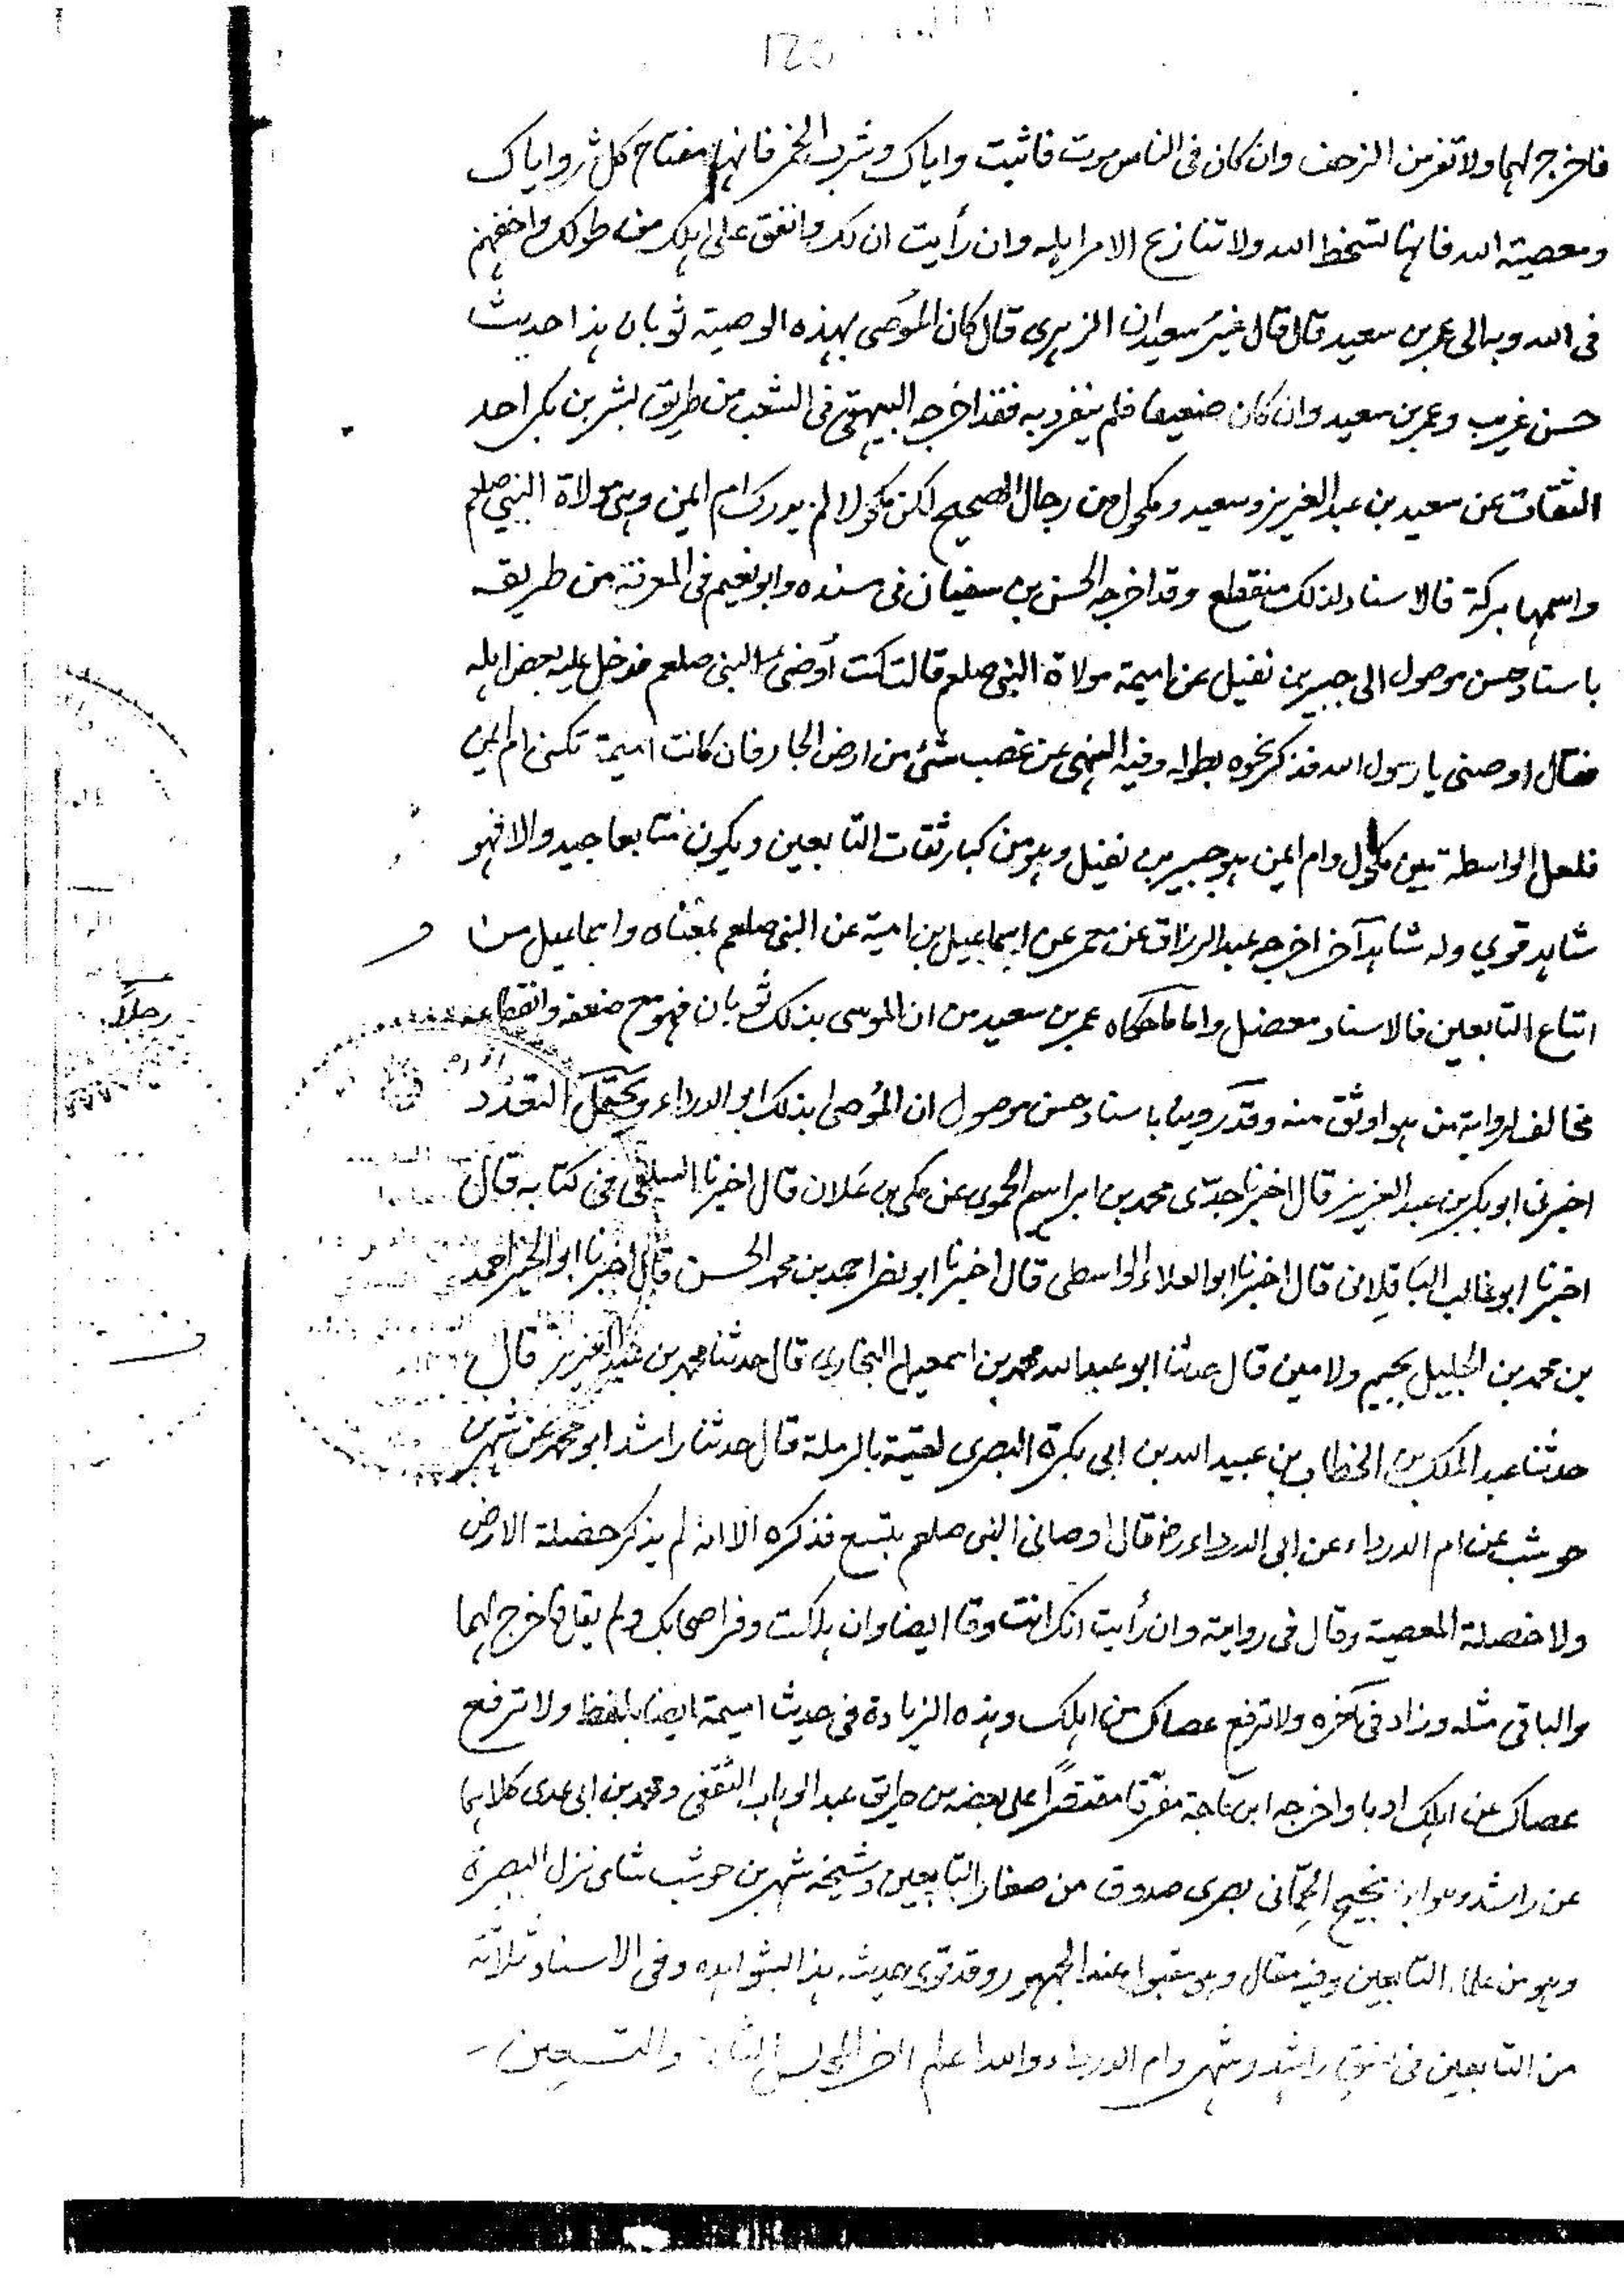 125
فاخرج لهما ولا تفر من الزحف وان كان فى الناس موت فاثبت واياك وشرب الخمر فانها مفتاح كل شر واياك
ومعصية الله فانها تسخط الله ولا تنازع الامر اهله وان رأيت ان لك وانفق على اهلك من طولك واخفهم
فى الله وبه الى عمر بن سعيد قال قال غير سعيد ان الزهرى قال كان الموصى بهذه الوصية ثوبان هذا حديث
حسن غريب وعمر بن سعيد وان كان ضعيفا فلم ينفرد به فقد اخرجه البيهقى فى الشعب من طريق بشر بن بكر احد
الثقات عن سعيد بن عبد العزيز وسعيد ومكحول من رجال الصحيح لكن مكحولا لم يدرك ام ايمن وهى مولاة النبى صلعم
واسمها بركة فالاسناد لذلك منقطع وقد اخرجه الحسن بن سفيان فى مسنده وابو نعيم فى المعرفة من طريقه
باسناد حسن موصول الى جبير بن نفيل عن اميمة مولاة النبى صلعم قالت كنت اوضى النبى صلعم فدخل عليه بعض اهله
فقال اوصنى يا رسول الله فذكر نحوه بطوله وفيه النهى عن غصب شئ من ارض الجار فان كانت اميمة تكنى ام ايمن
فلعل الواسطة بين مكحول وام ايمن هو جبير بن نفيل وهو من كبار ثقات التابعين ويكون متابعا جيد والا فهو
شاهد قوي وله شاهد آخر اخرجه عبد الرزاق عن معمر عن اسماعيل بن امية عن النبى صلعم بمعناه واسماعيل من
اتباع التابعين فالاسناد معضل واما ما حكاه عمر بن سعيد من ان الموسى بذلك ثوبان فهو مع ضعفه وانقطاعه
مخالف لرواية من هو اوثق منه وقد روينا باسناد حسن موصول ان الموصى بذلك ابو الدرداء ويحتمل التعدد
اخبرنى ابو بكر بن عبد العزيز قال اخبرنا جدى محمد بن ابراهيم الحموى عن مكى بن علان قال اخبرنا السلفى فى كتابه قال
اخبرنا ابو غالب الباقلانى قال اخبرنا ابو العلاء الواسطى قال اخبرنا ابو نصر احمد بن محمد الحسن قال اخبرنا ابو الخير احمد
بن محمد بن الجليل بجيم ولامين قال حدثنا ابو عبد الله محمد بن اسمعيل البخارى قال حدثنا محمد بن عبد العزيز قال
حدثنا عبد الملك بن الخطاب بن عبيد الله بن ابى بكرة البصرى لقيته بالرملة قال حدثنا راشد ابو محمد عن شهر بن
حوشب عن ام الدرداء عن ابى الدرداء رض قال اوصانى النبى صلعم بتسع فذكره الا انه لم يذكر خصلة الارض
ولا خصلة المعصية وقال فى رواية وان رأيت انك انت وقا ايضا وان هلكت وفر اصحابك ولم يقل فاخرج لهما
والباقى مثله وزاد فى آخره ولا ترفع عصاك من اهلك وهذه الزيادة فى حديث اميمة ايضا بلفظ ولا ترفع
عصاك عن اهلك ادبا واخرجه ابن ماجة مفرقا مقتصرًا على بعضه من طريق عبد الوهاب الثقفى ومحمد بن ابى عدى كلاهما
عن راشد وهو ابن نجيح الحمانى بصرى صدوق من صغار التابعين وشيخه شهر بن حوشب شامى نزل البصرة
وهو من علماء التابعين وفيه مقال وهو مقبول عند الجمهور وقد توى حديثه هذا لشواهده وفى الاسناد ثلاثة
من التابعين فى نسق راشد وشهر وام الدرداء والله اعلم آخر المجلس الثانى والتسعين
رجلاً